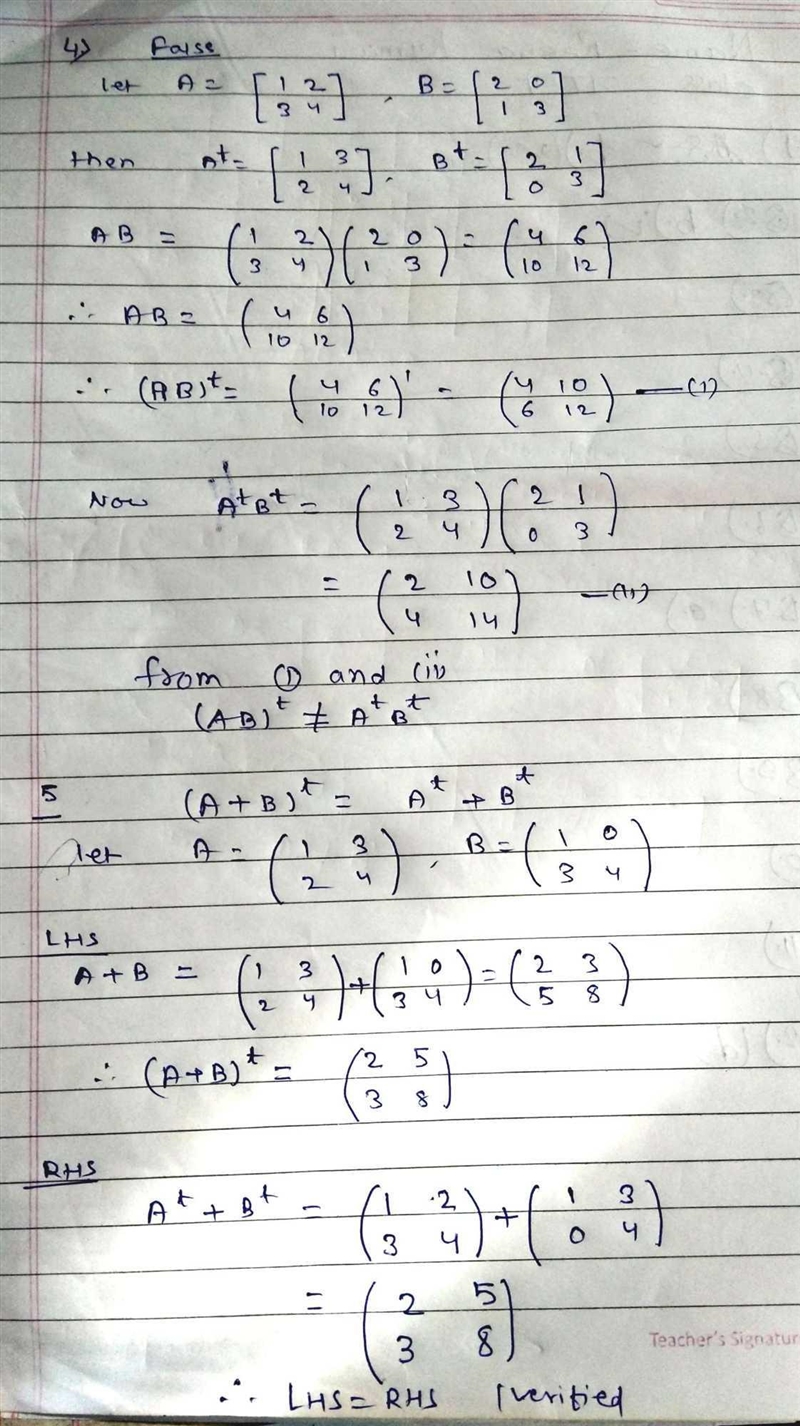 4) False
let A = [1 2 3 4] , B = [2 0 1 3]
then Aᵗ = [1 3 2 4] , Bᵗ = [2 1 0 3]
AB = (1 2 3 4) (2 0 1 3) = (4 6 10 12)
∴ AB = (4 6 10 12)
∴ (AB)ᵗ = (4 6 10 12)' = (4 10 6 12) —(1)
Now AᵗBᵗ = (1 3 2 4) (2 1 0 3)
= (2 10 4 14) —(11)
from ① and (ii)
(AB)ᵗ ≠ AᵗBᵗ
5 (A+B)ᵗ = Aᵗ + Bᵗ
let A = (1 3 2 4) , B = (1 0 3 4)
LHS
A+B = (1 3 2 4) + (1 0 3 4) = (2 3 5 8)
∴ (A+B)ᵗ = (2 5 3 8)
RHS
Aᵗ + Bᵗ = (1 2 3 4) + (1 3 0 4)
= (2 5 3 8)
Teacher's Signatur
∴ LHS = RHS verified